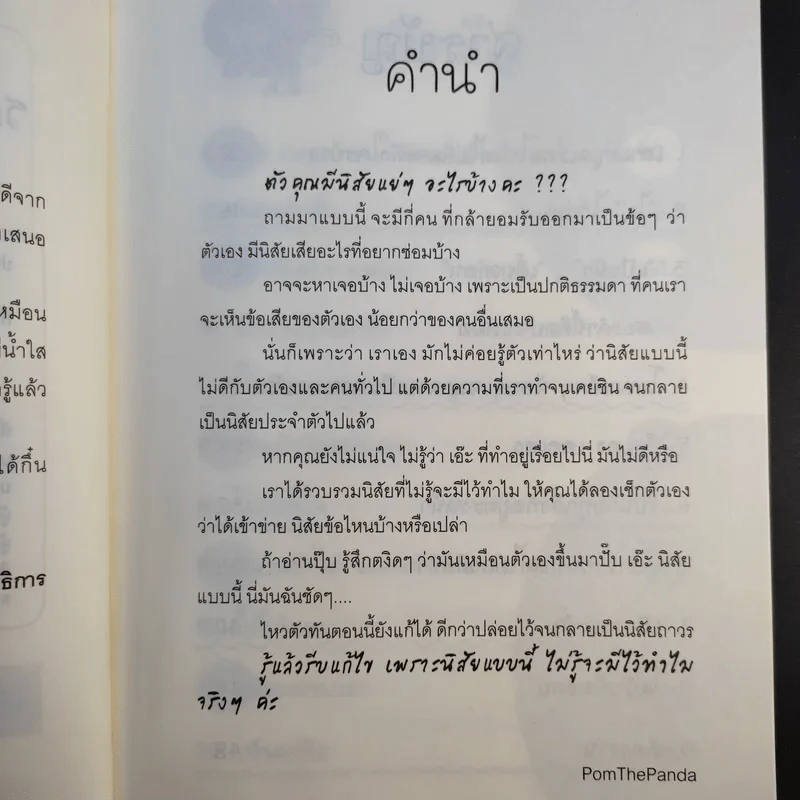 ดีจาก
เสนอ
หมือน
น้ำใส
รู้แล้ว
ได้กึ๋น
ธิการ
คำนำ
ตัวคุณมีนิสัยแย่ๆ อะไรบ้างคะ ???
ถามมาแบบนี้ จะมีกี่คน ที่กล้ายอมรับออกมาเป็นข้อๆ ว่า
ตัวเอง มีนิสัยเสียอะไรที่อยากซ่อมบ้าง
อาจจะหาเจอบ้าง ไม่เจอบ้าง เพราะเป็นปกติธรรมดา ที่คนเรา
จะเห็นข้อเสียของตัวเอง น้อยกว่าของคนอื่นเสมอ
นั่นก็เพราะว่า เราเอง มักไม่ค่อยรู้ตัวเท่าไหร่ ว่านิสัยแบบนี้
ไม่ดีกับตัวเองและคนทั่วไป แต่ด้วยความที่เราทำจนเคยชิน จนกลาย
เป็นนิสัยประจำตัวไปแล้ว
หากคุณยังไม่แน่ใจ ไม่รู้ว่า เอ๊ะ ที่ทำอยู่เรื่อยไปนี่ มันไม่ดีหรือ
เราได้รวบรวมนิสัยที่ไม่รู้จะมีไว้ทำไม ให้คุณได้ลองเช็กตัวเอง
ว่าได้เข้าข่าย นิสัยข้อไหนบ้างหรือเปล่า
ถ้าอ่านปุ๊บ รู้สึกตงิดๆ ว่ามันเหมือนตัวเองขึ้นมาปั๊บ เอ๊ะ นิสัย
แบบนี้ นี่มันฉันชัดๆ....
ไหวตัวทันตอนนี้ยังแก้ได้ ดีกว่าปล่อยไว้จนกลายเป็นนิสัยถาวร
รู้แล้วรีบแก้ไข เพราะนิสัยแบบนี้ ไม่รู้จะมีไว้ทำไม
จริงๆ ค่ะ
PomThePanda